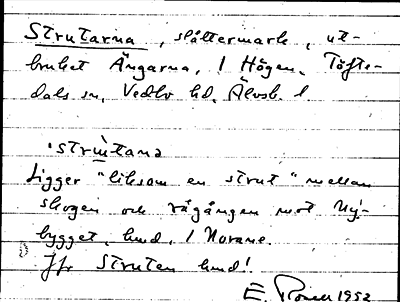 Strutarna, slåttermark, ut-
bruket Ängarna, 1 Högen. Töfte-
dals sn, Vedbo hd, Älvsb. l
Ligger "liksom en strut" mellan
skogen och rågången mot Ny-
bygget, hmd, 1 Norane.
Jfr Struten hmd!
E. 1952